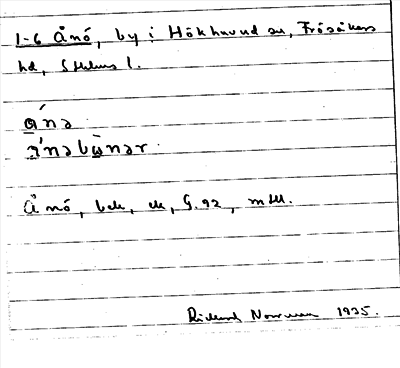 1-6 Ånö, by i Hökhuvud sn, Frösåkers
hd, Sthlms l.
ánə
ánəbònər
Ånö, bek, ek, G. 92, mtl.
Rickard Norrman 1935.